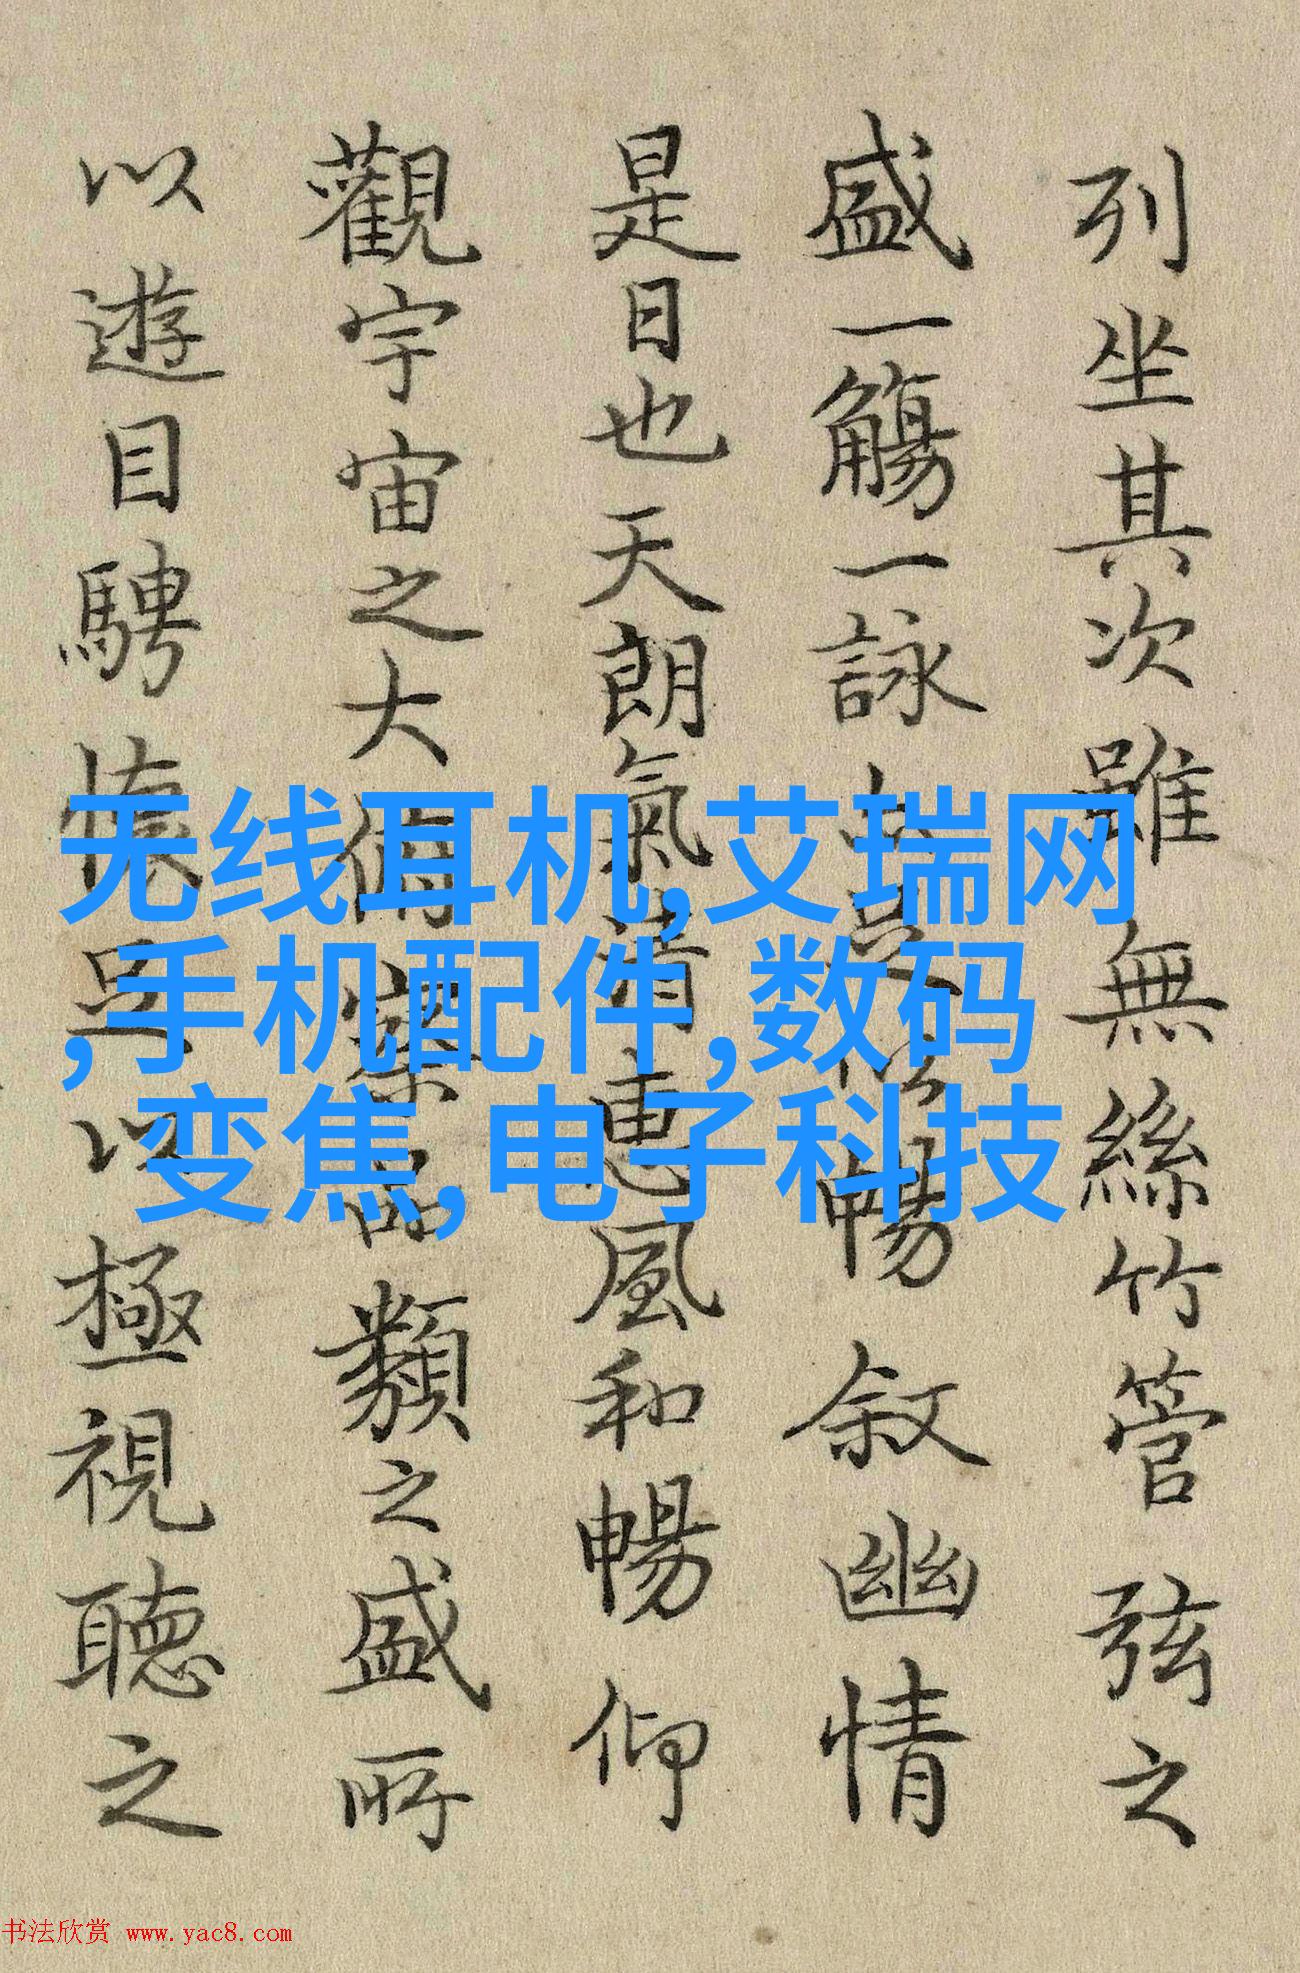 列坐其次雖無絲竹管弦之
盛一觴一詠亦足以暢叙幽情
是日也天朗氣清惠風和暢仰
觀宇宙之大俯察品類之盛所
以遊目騁懷足以極視聽之
无线耳机,艾瑞网
,手机配件,数码
变焦,电子科技
书法欣赏 www.yac8.com